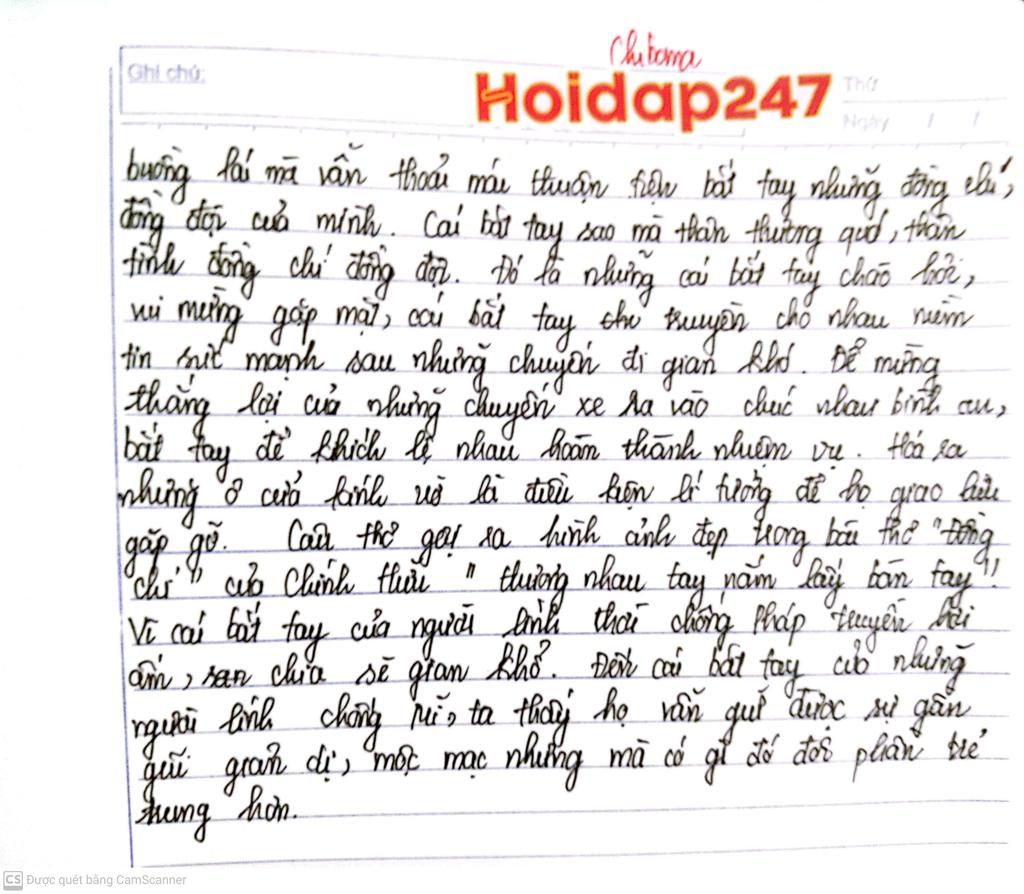 Chitoma
Ghi chú:
Hoidap247
Thứ
Ngày / /
buồng lái mà vẫn thoải mái thuận tiện bắt tay những đồng chí,
đồng đội của mình. Cái bắt tay sao mà thân thương quá, thân
tình đồng chí đồng đội. Đó là những cái bắt tay chào hỏi,
vui mừng gặp mặt, cái bắt tay truyền cho nhau niềm
tin sức mạnh sau những chuyến đi gian khó. Để mừng
thắng lợi của những chuyến xe ra vào chúc nhau bình an,
bắt tay để khích lệ nhau hoàn thành nhiệm vụ. Hóa ra
những ô cửa kính vỡ là điều kiện lí tưởng để họ giao lưu
gặp gỡ. Câu thơ gợi ra hình ảnh đẹp trong bài thơ "Đồng
chí" của Chính Hữu "thương nhau tay nắm lấy bàn tay".
Vì cái bắt tay của người lính thời chống Pháp truyền hơi
ấm, chia sẻ gian khổ. Đến cái bắt tay của những
người lính chống Mĩ, ta thấy họ vẫn giữ được sự gần
gũi giản dị, mộc mạc nhưng mà có gì đó đôi phần trẻ
trung hơn.
CS Được quét bằng CamScanner